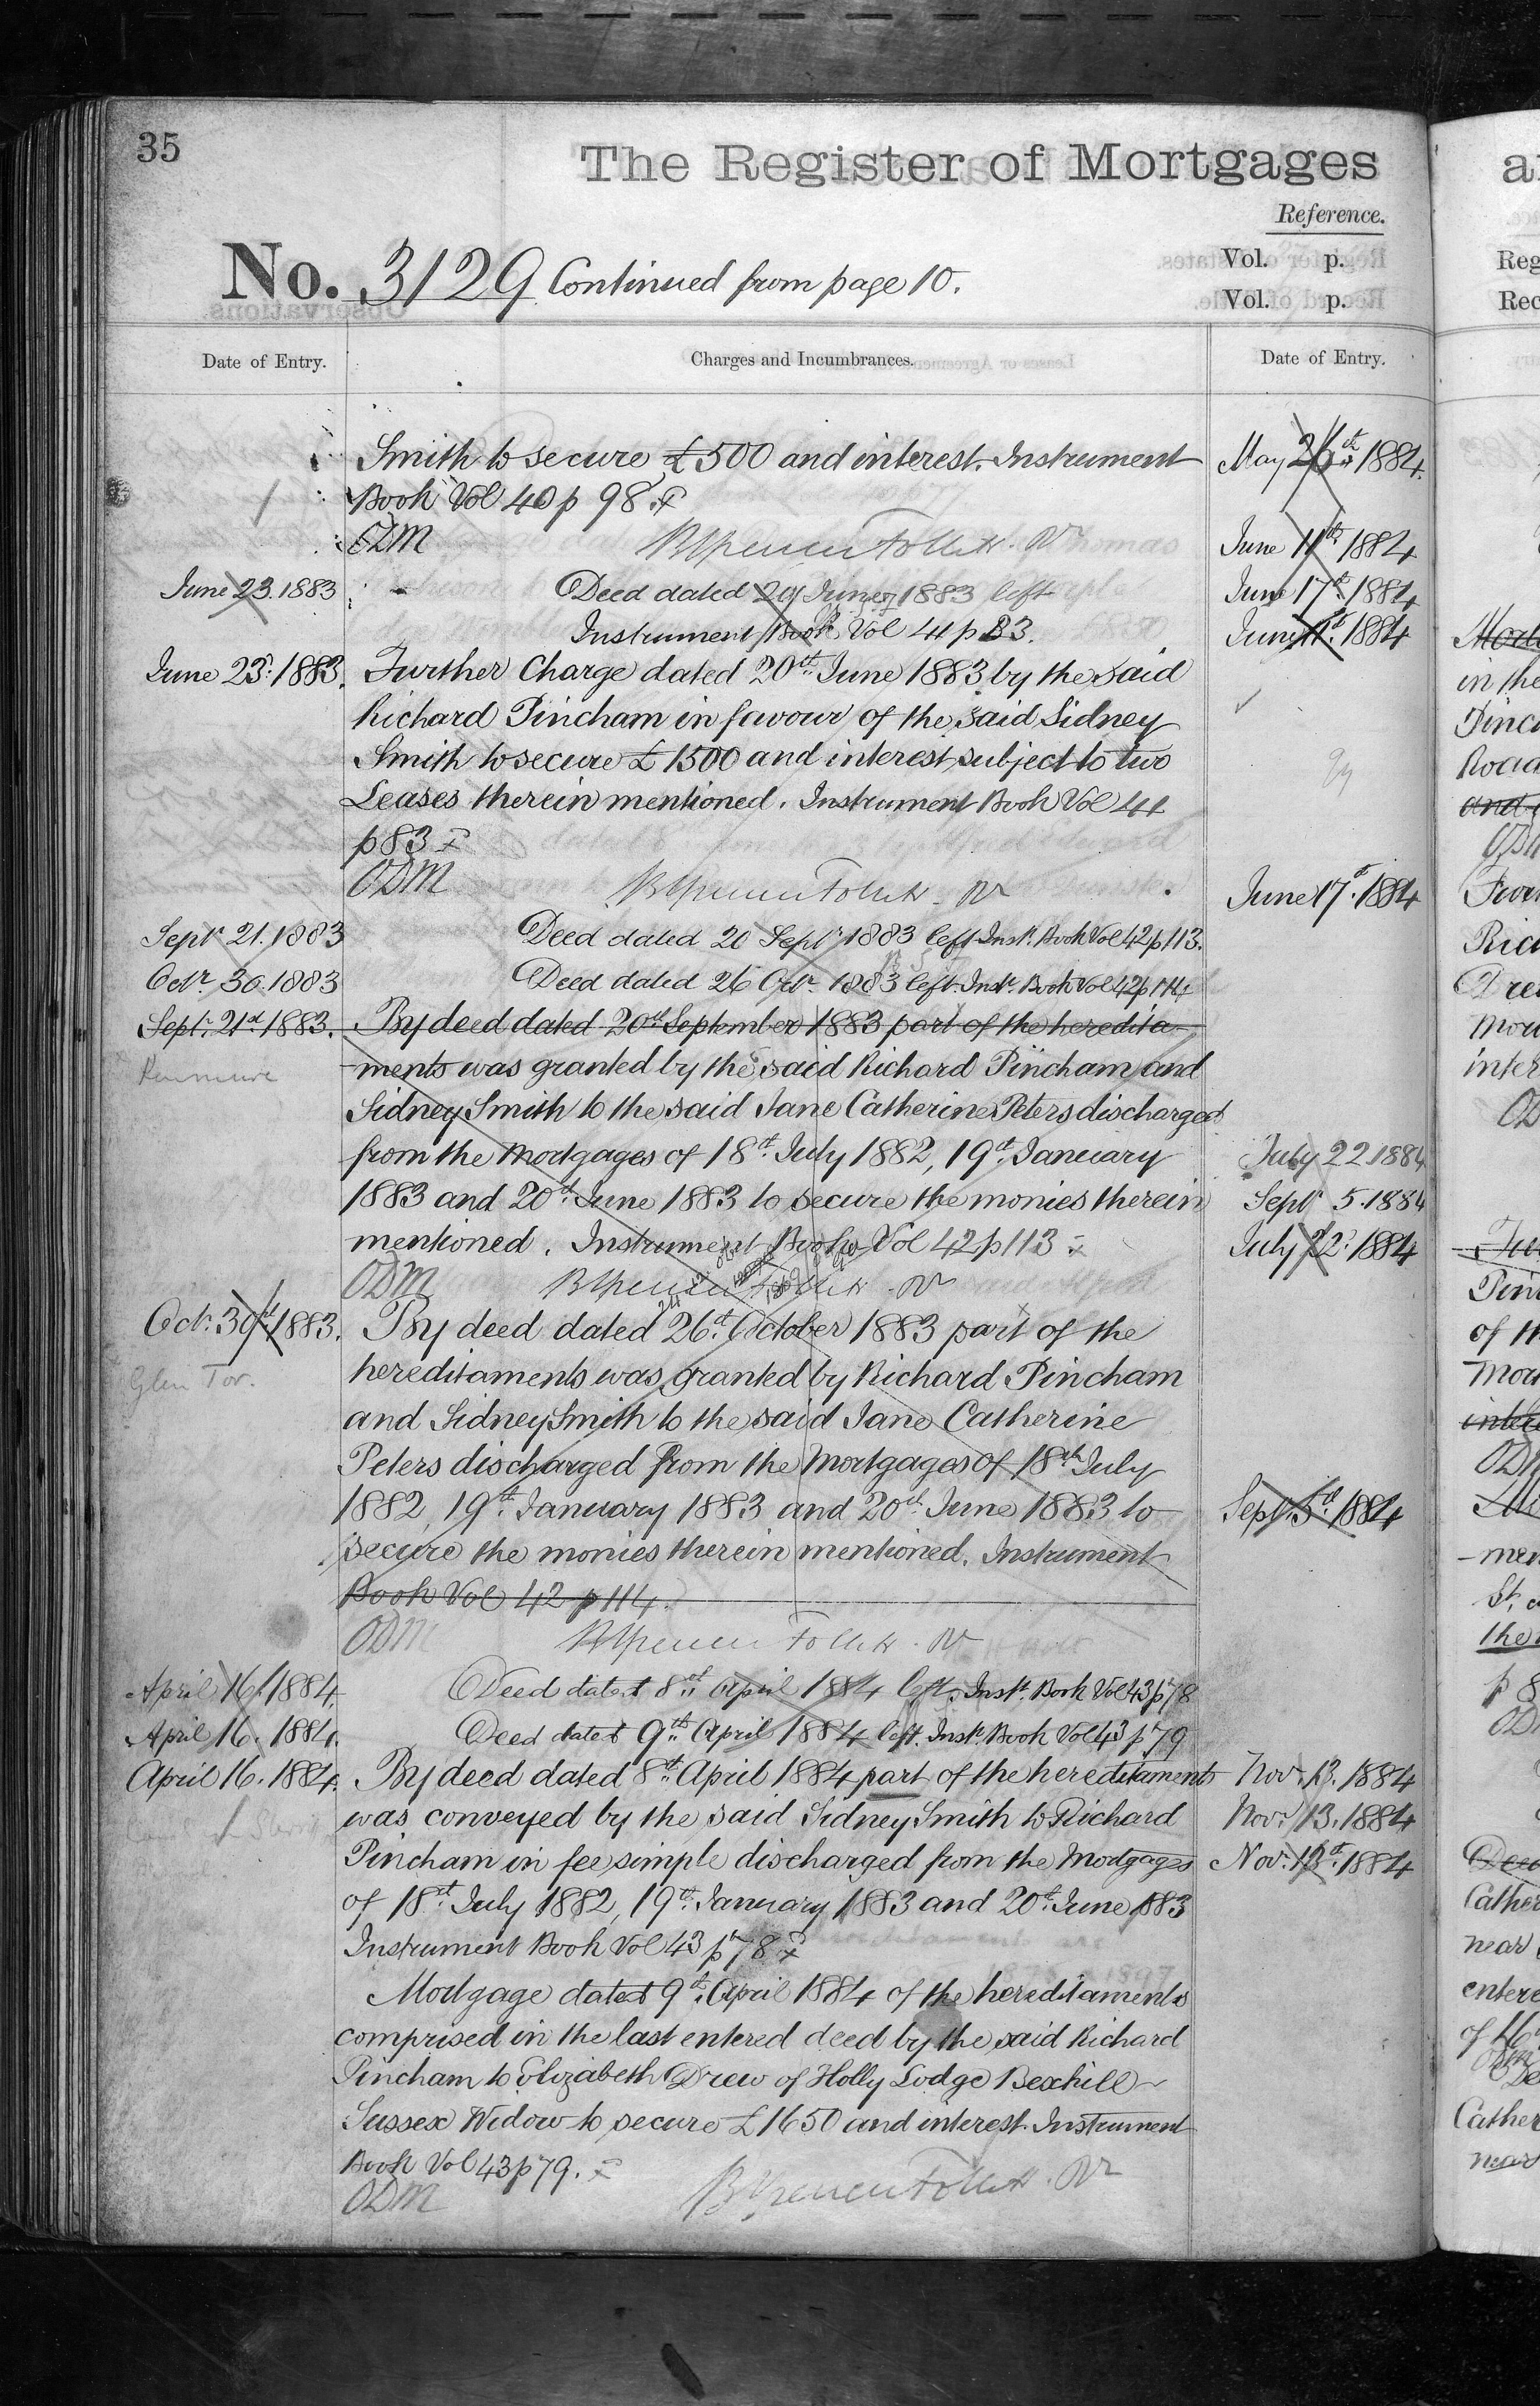 35
The Register of Mortgages
Reference.
No. 3129 Continued from page 10.
Vol. p.
Vol. p.
Date of Entry.
Charges and Incumbrances.
Date of Entry.
Smith to secure £500 and interest. Instrument
Book Vol 40 p 98.
ODM
June 23. 1883 Deed dated 20 June 1883 left
Instrument Book Vol 41 p 83.
June 23rd 1883. Further Charge dated 20th June 1883 by the said
Richard Pincham in favour of the said Sidney
Smith to secure £1500 and interest subject to two
Leases therein mentioned. Instrument Book Vol 41
p 83
ODM
Septr 21. 1883 Deed dated 20 Septr 1883 left Instt. Book Vol 42 p 113.
Octr. 30. 1883 Deed dated 26 Octr. 1883 left. Instt. Book Vol 42 p 114
Septr. 21st 1883. By deed dated 20th September 1883 part of the heredita-
Kenmure -ments was granted by the said Richard Pincham and
Sidney Smith to the said Jane Catherine Peters discharged
from the Mortgages of 18th July 1882, 19th January
1883 and 20th June 1883 to secure the monies therein
mentioned. Instrument Book Vol 42 p 113
ODM
Octr. 30th 1883. By deed dated 26th October 1883 part of the
Glen Tor. hereditaments was granted by Richard Pincham
and Sidney Smith to the said Jane Catherine
Peters discharged from the Mortgages of 18th July
1882, 19th January 1883 and 20th June 1883 to
secure the monies therein mentioned. Instrument
Book Vol 42 p 114.
ODM
April 16. 1884. Deed dated 8th April 1884 left. Instt. Book Vol 43 p 78
April 16. 1884. Deed dated 9th April 1884 left. Instt. Book Vol 43 p 79
April 16. 1884. By deed dated 8th April 1884 part of the hereditaments
was conveyed by the said Sidney Smith to Richard
Pincham in fee simple discharged from the Mortgages
of 18th July 1882, 19th January 1883 and 20th June 1883
Instrument Book Vol 43 p 78
Mortgage dated 9th April 1884 of the hereditaments
comprised in the last entered deed by the said Richard
Pincham to Elizabeth Drew of Holly Lodge Bexhill
Sussex Widow to secure £1650 and interest. Instrument
Book Vol 43 p 79.
ODM
May 1884.
June 11th 1884
June 17th 1884
June 1884
June 17th 1884
July 22 1884
Septr 5. 1884
July 22 1884
Septr. 5th 1884
Novr. 13. 1884
Novr. 13. 1884
Nov. 13th 1884